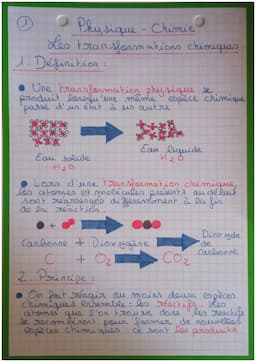 1
Physique - Chimie
Les transformations chimiques
1. Définition :
• Une transformation physique se
produit lorsqu'une même espèce chimique
passe d'un état à un autre
Eau solide
H₂O
Eau liquide
H₂O
• Lors d'une transformation chimique,
les atomes et molécules présents au début
sont réarrangés différemment à la fin
de la réaction.
Carbone + Dioxygène → Dioxyde
de
carbone
C + O₂ → CO₂
2. Principe :
• On fait réagir au moins deux espèces
chimiques ensemble : les réactifs. Les
atomes que l'on trouve dans les réactifs
se recombinent pour former de nouvelles
espèces chimiques : ce sont les produits.